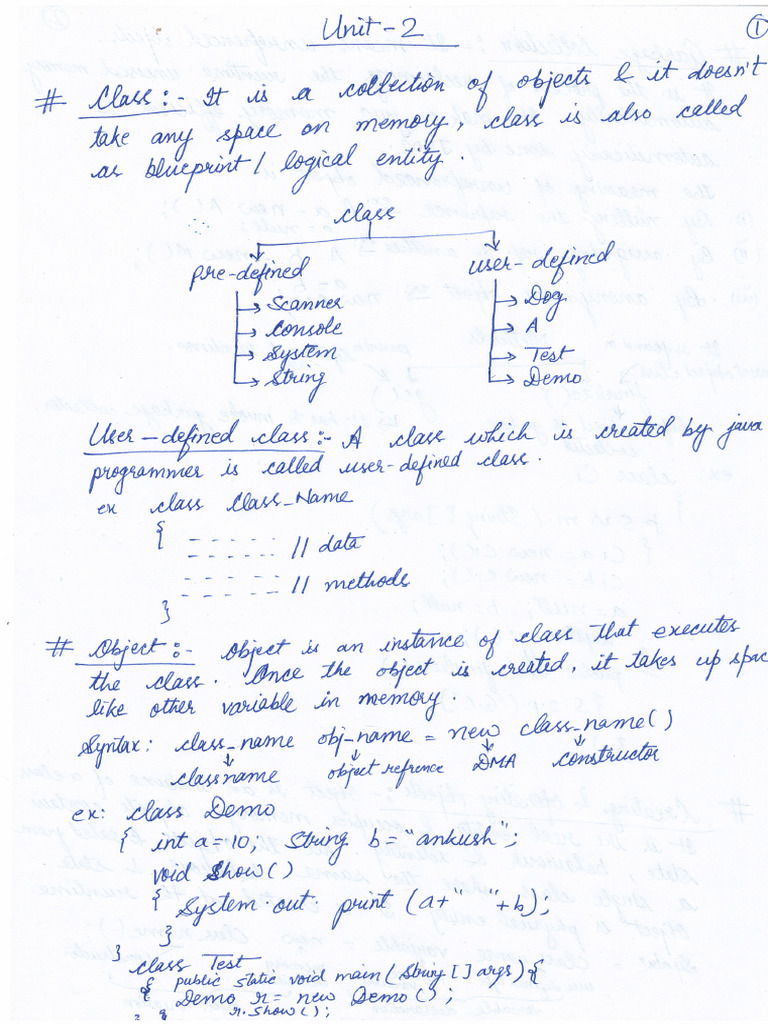 Unit-2
1
# Class:- It is a collection of objects & it doesn't
take any space on memory, class is also called
as blueprint/logical entity.
class
pre-defined
→ Scanner
→ Console
→ System
→ String
user-defined
→ Dog
→ A
→ Test
→ Demo
User-defined class:- A class which is created by java
programmer is called user-defined class.
ex class Class_Name
{
// data
// methods
}
# Object:- Object is an instance of class that executes
the class. Once the object is created, it takes up spac
like other variable in memory.
Syntax: class_name obj_name = new class_name()
classname object refrence DMA constructor
ex: class Demo
{ int a=10; String b="ankush";
void Show()
{ System.out.print (a+" "+b);
}
}
class Test
{ public static void main(String[] args){
Demo r = new Demo();
r.show();